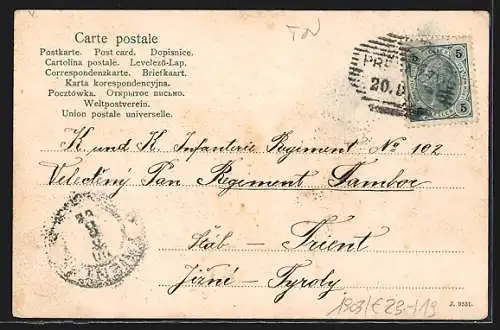 TN
Carte postale
Postkarte. Post card. Dopisnice.
Cartolina postale. Levelező-Lap.
Correspondenzkarte. Briefkaart.
Karta korespondencyjna.
Pocztówka. Открытое письмо.
Weltpostverein.
Union postale universelle.
5 5
5 5
20.
K. und K. Infanterie Regiment No 102
Velectěný Pan Regement Tambor
Štáb – Trient
Jižní – Tyroly
1903/€23-/19
J. 9351.